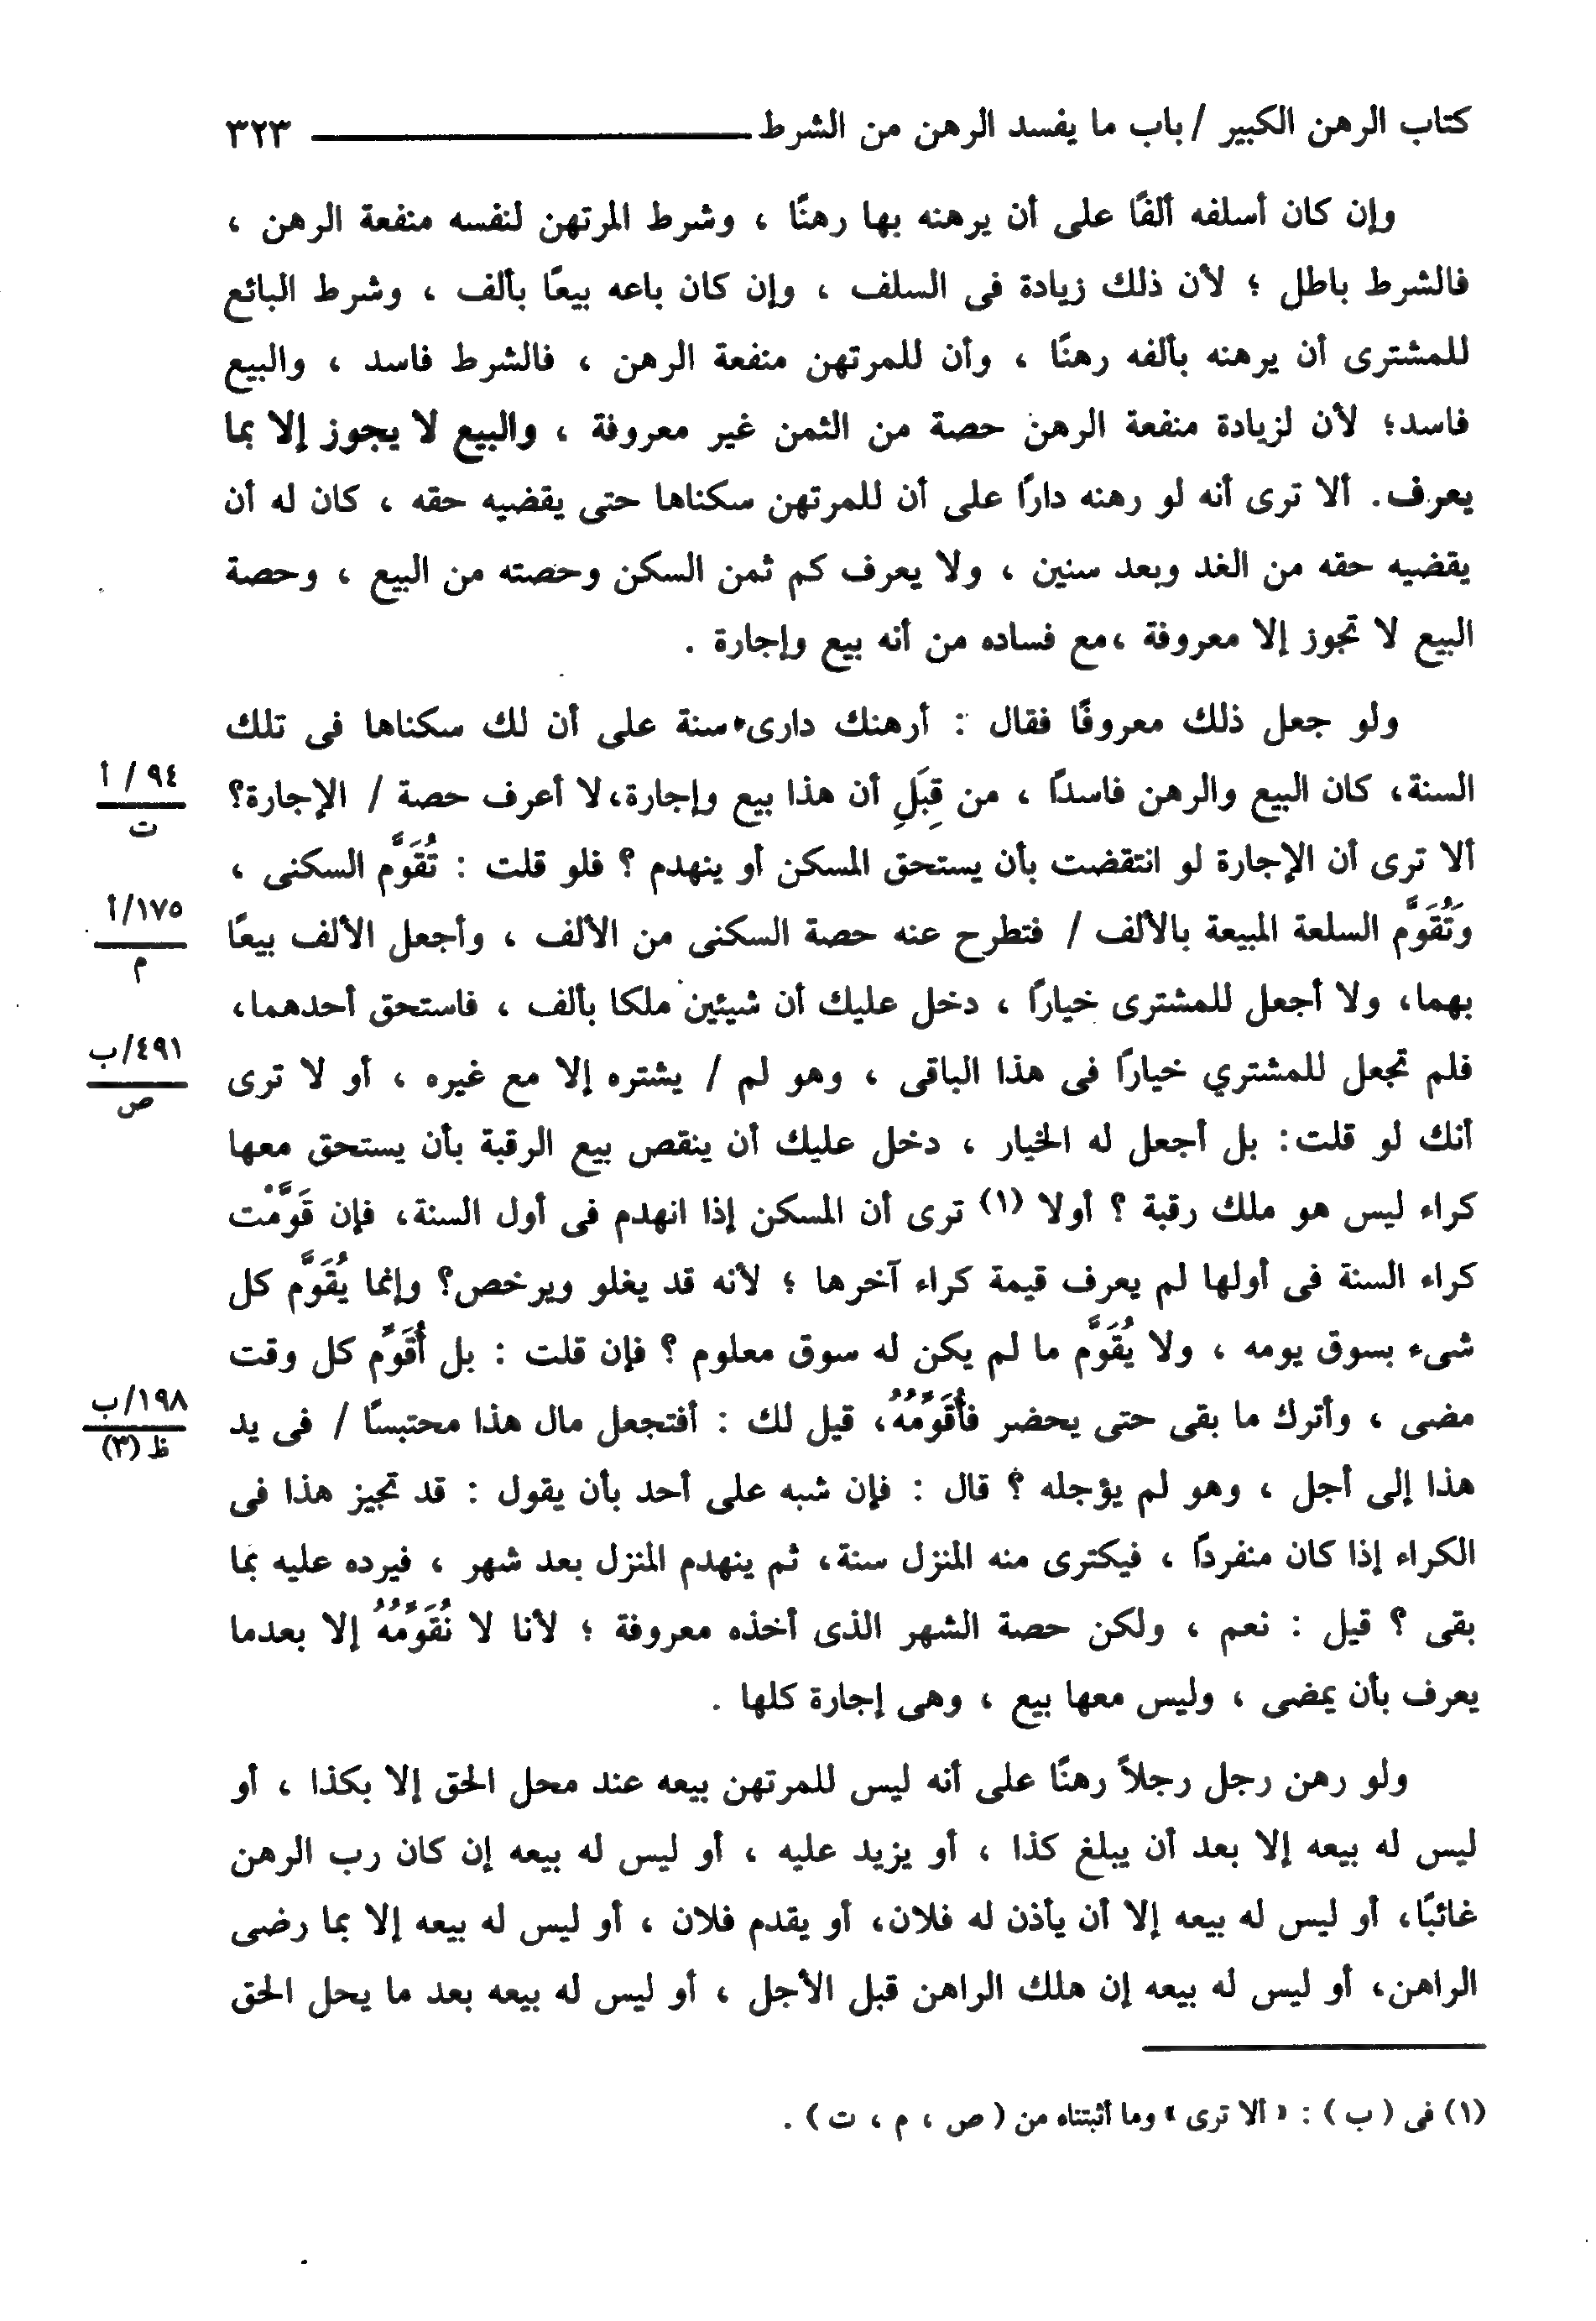 كتاب الرهن الكبير / باب ما يفسد الرهن من الشرط ٣٢٣
وإن كان أسلفه ألفًا على أن يرهنه بها رهنًا ، وشرط المرتهن لنفسه منفعة الرهن ،
فالشرط باطل ؛ لأن ذلك زيادة فى السلف ، وإن كان باعه بيعًا بألف ، وشرط البائع
للمشترى أن يرهنه بألفه رهنًا ، وأن للمرتهن منفعة الرهن ، فالشرط فاسد ، والبيع
فاسد؛ لأن لزيادة منفعة الرهن حصة من الثمن غير معروفة ، والبيع لا يجوز إلا بما
يعرف. ألا ترى أنه لو رهنه دارًا على أن للمرتهن سكناها حتى يقضيه حقه ، كان له أن
يقضيه حقه من الغد وبعد سنين ، ولا يعرف كم ثمن السكن وحصته من البيع ، وحصة
البيع لا تجوز إلا معروفة ،مع فساده من أنه بيع وإجارة .
ولو جعل ذلك معروفًا فقال : أرهنك دارى سنة على أن لك سكناها فى تلك
السنة، كان البيع والرهن فاسدًا ، من قِبَلِ أن هذا بيع وإجارة،لا أعرف حصة / الإجارة؟
٩٤ / أ
ت
ألا ترى أن الإجارة لو انتقضت بأن يستحق المسكن أو ينهدم ؟ فلو قلت : تُقَوَّم السكنى ،
وَتُقَوَّم السلعة المبيعة بالألف / فتطرح عنه حصة السكنى من الألف ، وأجعل الألف بيعًا
١٧٥/أ
م
بهما، ولا أجعل للمشترى خيارًا ، دخل عليك أن شيئين ملكا بألف ، فاستحق أحدهما،
فلم تجعل للمشتري خيارًا فى هذا الباقى ، وهو لم / يشتره إلا مع غيره ، أو لا ترى
٤٩١/ب
ص
أنك لو قلت: بل أجعل له الخيار ، دخل عليك أن ينقص بيع الرقبة بأن يستحق معها
كراء ليس هو ملك رقبة ؟ أولا (١) ترى أن المسكن إذا انهدم فى أول السنة، فإن قَوَّمْت
كراء السنة فى أولها لم يعرف قيمة كراء آخرها ؛ لأنه قد يغلو ويرخص؟ وإنما يُقَوَّم كل
شىء بسوق يومه ، ولا يُقَوَّم ما لم يكن له سوق معلوم ؟ فإن قلت : بل أُقَوِّم كل وقت
مضى ، وأترك ما بقى حتى يحضر فأُقَوِّمُهُ، قيل لك : أفتجعل مال هذا محتبسًا / فى يد
١٩٨/ب
ظ (٣)
هذا إلى أجل ، وهو لم يؤجله ؟ قال : فإن شبه على أحد بأن يقول : قد تجيز هذا فى
الكراء إذا كان منفردًا ، فيكترى منه المنزل سنة، ثم ينهدم المنزل بعد شهر ، فيرده عليه بما
بقى ؟ قيل : نعم ، ولكن حصة الشهر الذى أخذه معروفة ؛ لأنا لا نُقَوِّمُهُ إلا بعدما
يعرف بأن يمضى ، وليس معها بيع ، وهى إجارة كلها .
ولو رهن رجل رجلاً رهنًا على أنه ليس للمرتهن بيعه عند محل الحق إلا بكذا ، أو
ليس له بيعه إلا بعد أن يبلغ كذا ، أو يزيد عليه ، أو ليس له بيعه إن كان رب الرهن
غائبًا، أو ليس له بيعه إلا أن يأذن له فلان، أو يقدم فلان ، أو ليس له بيعه إلا بما رضى
الراهن، أو ليس له بيعه إن هلك الراهن قبل الأجل ، أو ليس له بيعه بعد ما يحل الحق
(١) فى ( ب ) : « ألا ترى » وما أثبتناه من ( ص ، م ، ت ) .